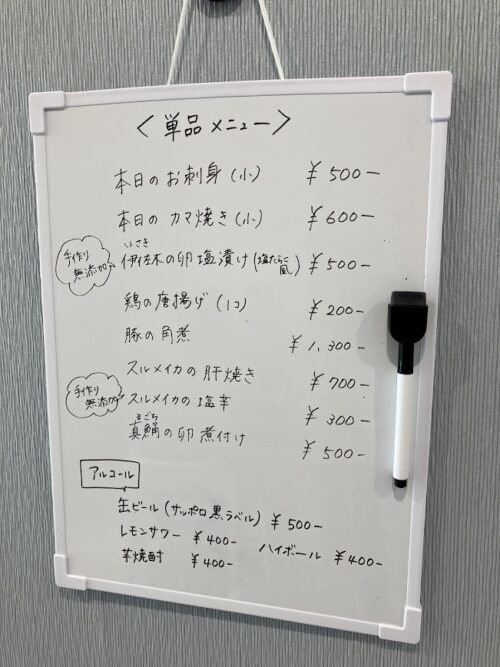 ＜単品メニュー＞
本日のお刺身(小) ¥500-
本日のカマ焼き(小) ¥600-
手作り
無添加
いさき
伊佐木の卵塩漬け(塩たらこ風) ¥500-
鶏の唐揚げ(1コ) ¥200-
豚の角煮 ¥1,300-
スルメイカの肝焼き ¥700-
手作り
無添加
スルメイカの塩辛 ¥300-
まごち
真鯒の卵煮付け ¥500-
アルコール
缶ビール(サッポロ黒ラベル) ¥500-
レモンサワー ¥400- ハイボール ¥400-
芋焼酎 ¥400-